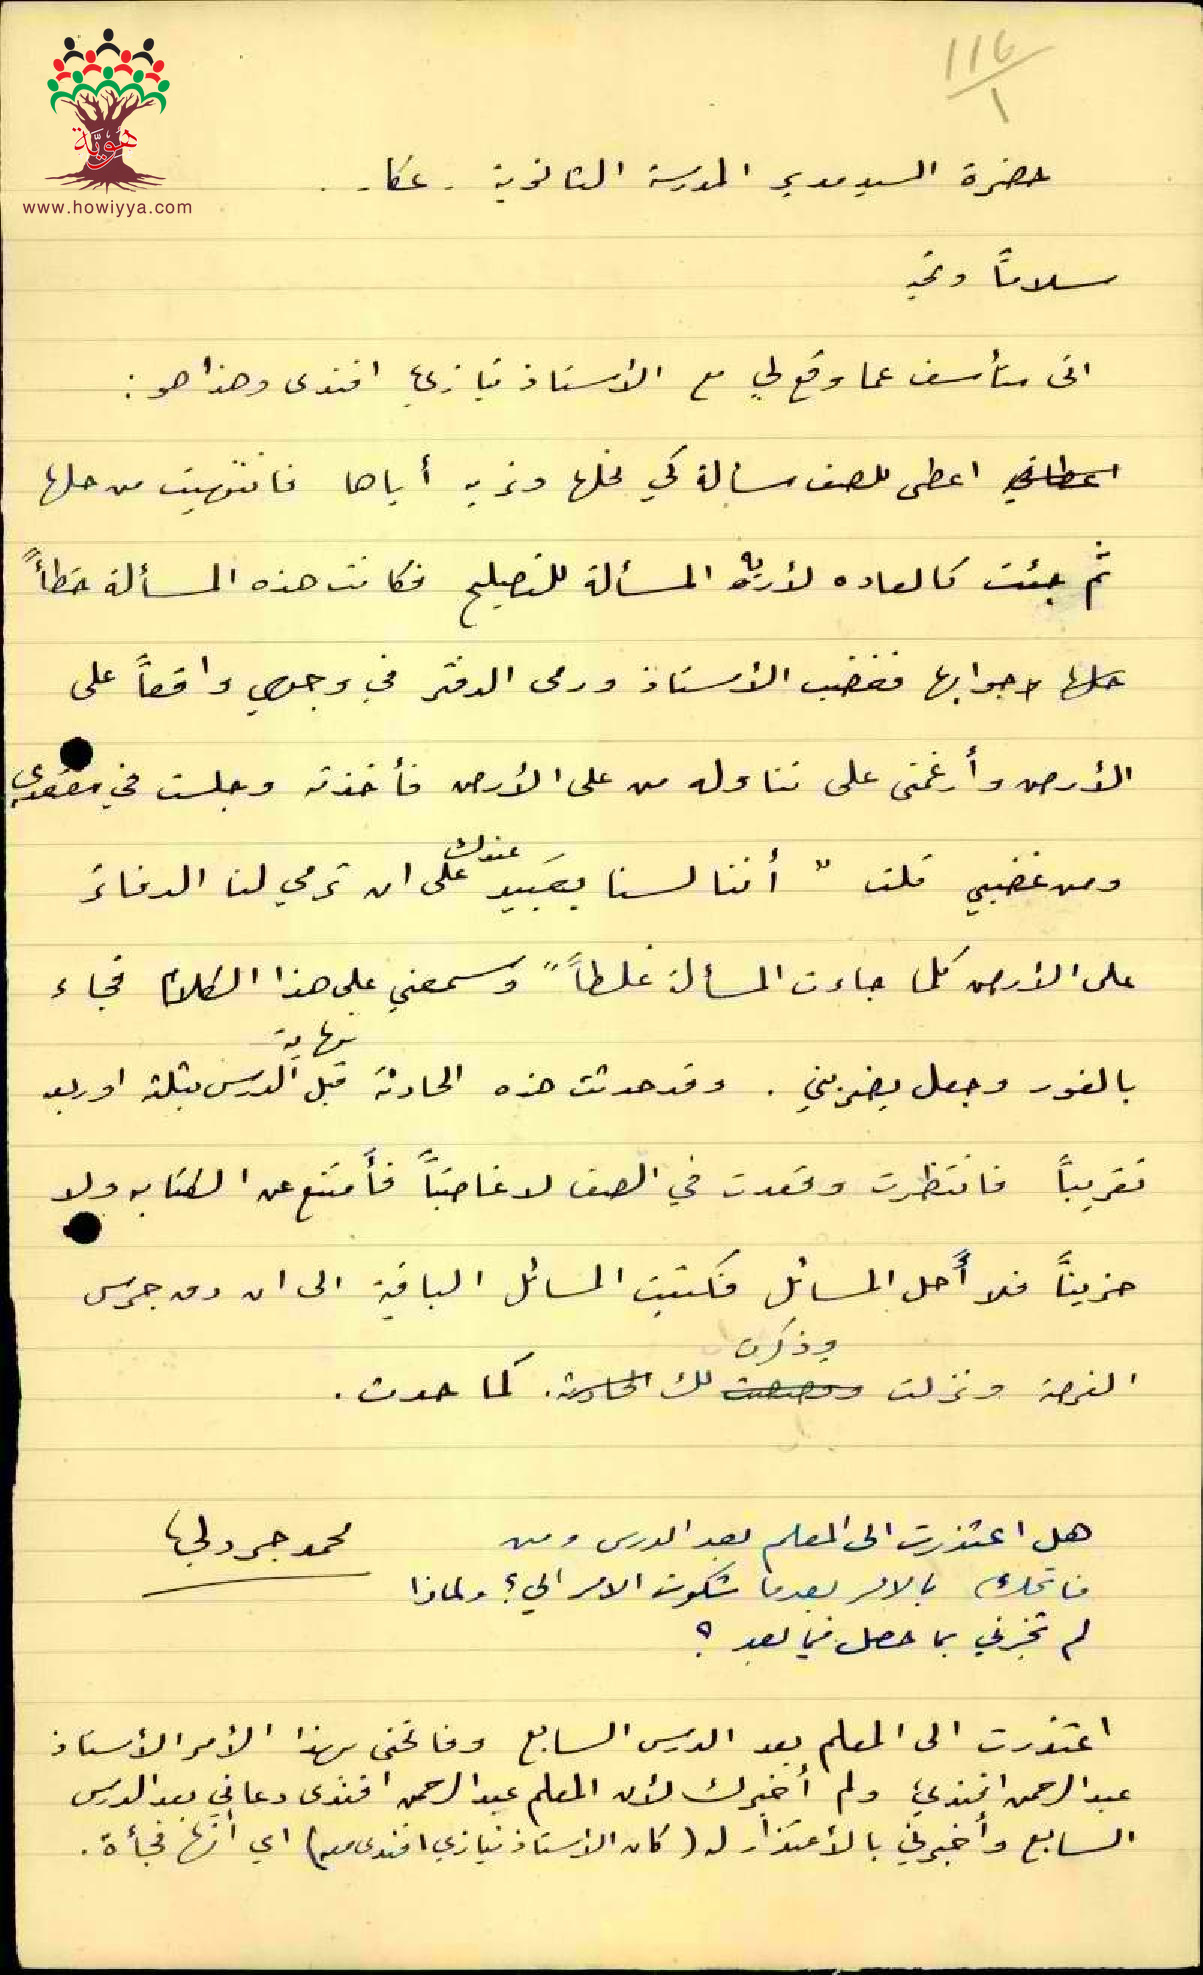 ١١٦
١
هوية
www.howiyya.com
حضرة السيد مدير المدرسة الثانوية - عكا - .
سلاماً وتحية
اني متأسف عما وقع لي مع الأستاذ نيازي افندي وهذا هو :
اعطاني اعطى للصف مسألة كي نحلها ونريه أياها فانتهيت من حلها
ثم جئت كالعاده لأريه المسألة للتصليح فكانت هذه المسألة خطأً
حلها وجوابها فغضب الأستاذ ورمى الدفتر في وجهي واقعاً على
الأرض وأرغمني على تناوله من على الأرض فأخذته وجلست في مقعدي
ومن غضبي قلت " أننا لسنا بعَبيد عندك على ان ترمي لنا الدفاتر
على الأرض كلما جاءت المسألة غلطاً " وسمعني على هذا الكلام فجاء
بالفور وجعل يضربني . وقد حدثت هذه الحادثة قبل نهاية الدرس بثلث او ربع
تقريباً فانتظرت وقعدت في الصف لا غاضباً فأمتنع عن الكتابه ولا
حزيناً فلا أحل المسائل فكتبت المسائل الباقية الى ان دق جرس
الفرصة ونزلت وذكرت لك الحادثة . كما حدث .
محمد جردلي
هل اعتذرت الى المعلم بعد الدرس ومن
فاتحك بالامر بعدما شكوت الامر الي ؟ ولماذا
لم تخبرني بما حصل فيما بعد ؟
اعتذرت الى المعلم بعد الدرس السابع وفاتحني بهذا الأمر الأستاذ
عبد الرحمن افندي ولم أخبرك لأن المعلم عبد الرحمن افندي دعاني بعد الدرس
السابع وأخبرني بالأعتذار له ( كان الأستاذ نيازي افندي معه ) اي أنها فجأة .